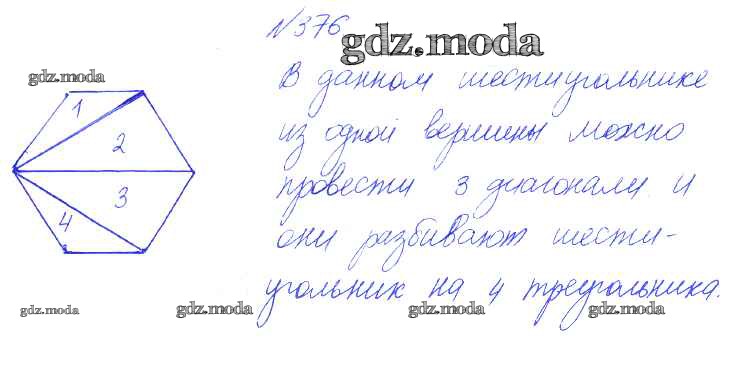 №376
gdz.moda
В данном шестиугольнике
из одной вершины можно
провести 3 диагонали и
они разбивают шести-
угольник на 4 треугольника.
gdz.moda
1
2
3
4
gdz.moda
gdz.moda
gdz.moda
gdz.moda